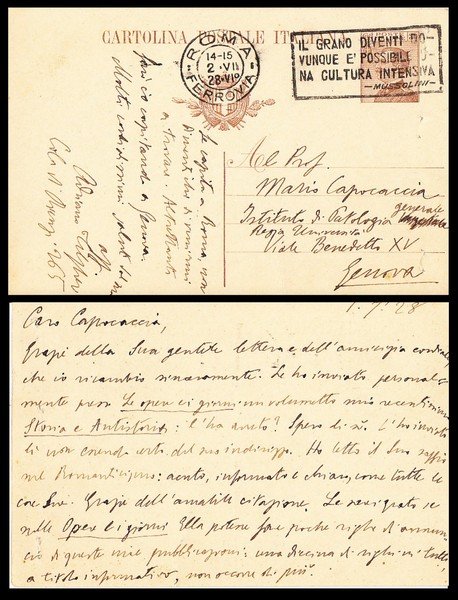 CARTOLINA POSTALE ITALIANA
ROMA
FERROVIA
14-15
2 · VII
28 · VI°
IL GRANO DIVENTI DO-
VUNQUE E' POSSIBILE U-
NA CULTURA INTENSIVA
— MUSSOLINI —
Al Prof.
Mario Capocaccia
Istituto di Patologia generale
Regia Università
Viale Benedetto XV
Genova
Se capita a Roma, non
dimentichi di venirmi
a trovare. Altrettanto
farò io capitando a Genova.
Molti cordialissimi saluti dal suo
aff.
Adriano Tilgher
265
1. 7. 28
Caro Capocaccia,
Grazie della Sua gentile lettera e dell'amicizia cordiale
che io ricambio sinceramente. Le ho inviato
Le opere e i giorni: un volumetto mio recentissimo
Storia e Antistoria: l'ha avuto? Spero di sì. L'ho inviato
lì non essendo certo del suo indirizzo. Ho letto il Suo saggio
sul Romanticismo: acuto, informato e chiaro, come tutte le
cose Sue. Grazie dell'amabile citazione. Le sarei grato se
nelle Opere e i giorni Ella potesse fare poche righe di annun-
cio di queste mie pubblicazioni: una decina di righe in tutto,
a titolo informativo, non occorre di più.